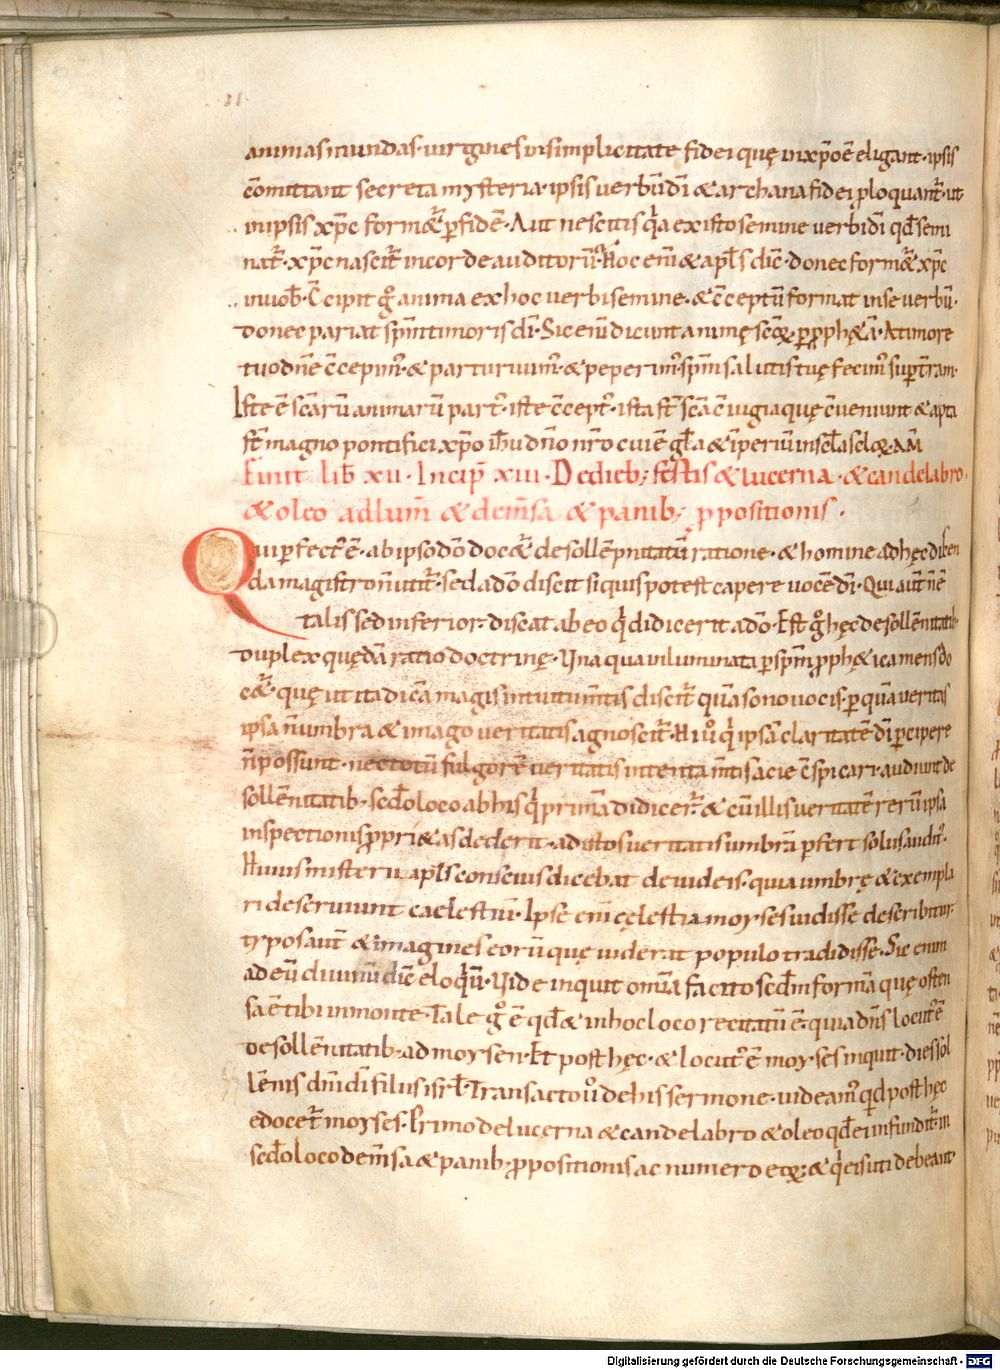 animas mundas. virgines insimplicitate fidei quę inxp̄o ē eligant. ipsis
c̄mittant secreta mysteria. ipsis verbū dī & archana fidei ploquant̄. ut
inipsis xp̄c form&̄ p fidē. Aut nescitis q̇a existo semine verbi dī qd̄ semi
nat̄. xp̄c nascit̄ incorde auditorū. Hoc enī & apl̄s dic̄. donec form&̄ xp̄c
inuob̄. C̄cipit gͦ anima exhoc verbi semine. & c̄ceptū format inse verbū.
donec pariat spm̄ timoris dī. Sic enī dicunt animę scͣꝝ. p proph&ā. Atimore
tuo dn̄e c̄cepim̓. & parturiuim̓. & peperim̓. spm̄ salutis tuę fecim̓ sup t̄ram.
Iste ē scārū animarū part̓. iste c̄cept̓. ista st̄ scā c̄iugia quę c̄ueniunt & apta
st̄ magno pontifici xp̄o ih̄u dn̄o nr̄o cui ē gl̄a & imperiū in scl̄a scl̄oꝝ. AM̄
Finit lib̄ xii. Incip̄ xiii. De dieb; festis & lucerna. & candelabro.
& oleo adlum̄ & dem̄sa & panib; ppositionis.
Qui pfect̓ ē. ab ipso dō doc&̄ de sollēpnitatū ratione. & homine adhęc dicen
da magistro n̄ utit̄. sed a dō discit siquis potest capere vocē dī. Qui aut̄ n̄ ē
talis sed inferior. discat abeo q̇ didicerit adō. Est gͦ hęc desollēnitatib
duplex quędā ratio doctrinę. Una qua inluminata p spm̄ proph&ica mens do
c&̄. quę ut ita dicā magis intuitu m̄tis discit̄ quā sono vocis. p quā veritas
ipsa n̄ umbra & imago veritatis agnoscit̄. Hi uͦ q̇ ipsā claritatē dī pcipere
n̄ possunt. nec totū fulgorē veritatis intenta m̄tis acie c̄spicari. audiunt de
sollēnitatib. scd̄o loco ab his q̇ primā didicer̄. & cū illis veritatē rerū ipsa
inspectionis ppri&as dederit. ad istos veritatis umbrā pfert solus audit̓.
Huius misterii apl̄s conscius dicebat deiudeis. quia umbrę & exempla
ri deseruiunt caelestiū. Ipse enī cęlestia moyses uidisse describitur.
typos aut̄ & imagines eorū quę viderat populo tradidisse. Sic enim
ad eū diuinū dic̄ eloq̇ū. Vide inquit om̄ia facito scd̄m formā quę osten
sa ē tibi inmonte. Tale gͦ ē qd̄ & inhoc loco recitatū ē. quia dn̄s locut̓ ē
desollēnitatib; ad moysen. Et post hęc. & locut̓ ē moyses inquit. dies sol
lēnis dn̄i dī filiis isrl̄. Transacto uͦ dehis sermone. uideam̓ qd post hęc
edocet̄ moyses. Primo delucerna & candelabro & oleo qd̄ ei infundit̄. in
scd̄o loco dem̄sa & panib; ppositionis ac numero eoꝝ; & q̇ eis uti debeant
Digitalisierung gefördert durch die Deutsche Forschungsgemeinschaft - DFG